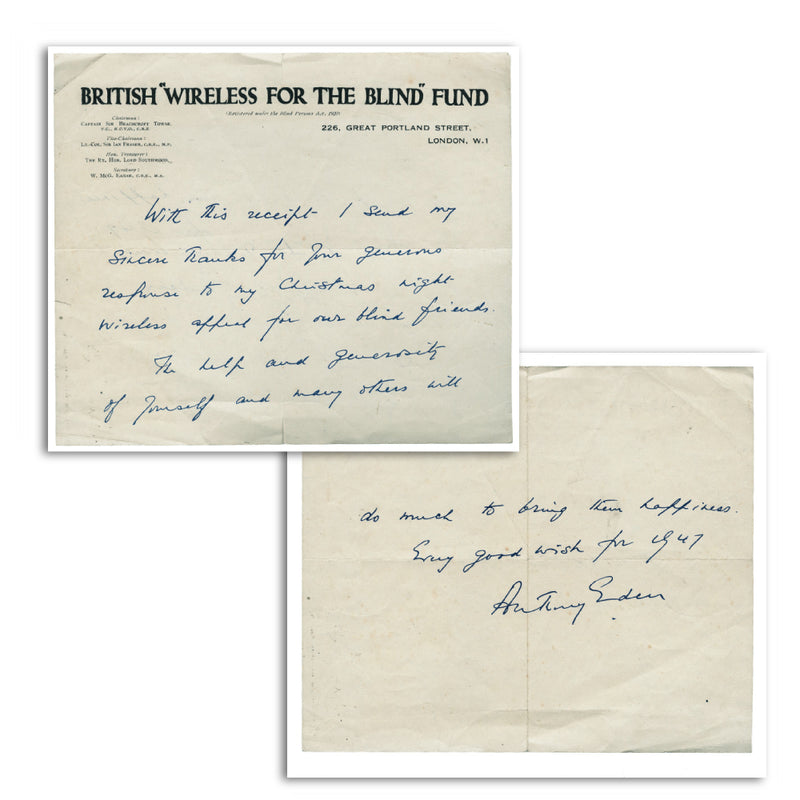 BRITISH "WIRELESS FOR THE BLIND" FUND
(Registered under the Blind Persons Act, 1920)
226, GREAT PORTLAND STREET,
LONDON, W.1
Chairman:
CAPTAIN SIR BEACHCROFT TOWSE,
V.C., K.C.V.O., C.B.E.
Vice-Chairman:
LT.-COL. SIR IAN FRASER, C.B.E., M.P.
Hon. Treasurer:
THE RT. HON. LORD SOUTHWOOD,
Secretary:
W. MCG. EAGAR, C.B.E., M.A.
With this receipt I send my
sincere thanks for your generous
response to my Christmas night
wireless appeal for our blind friends.
The help and generosity
of yourself and many others will
do much to bring them happiness.
Every good wish for 1947
Anthony Eden